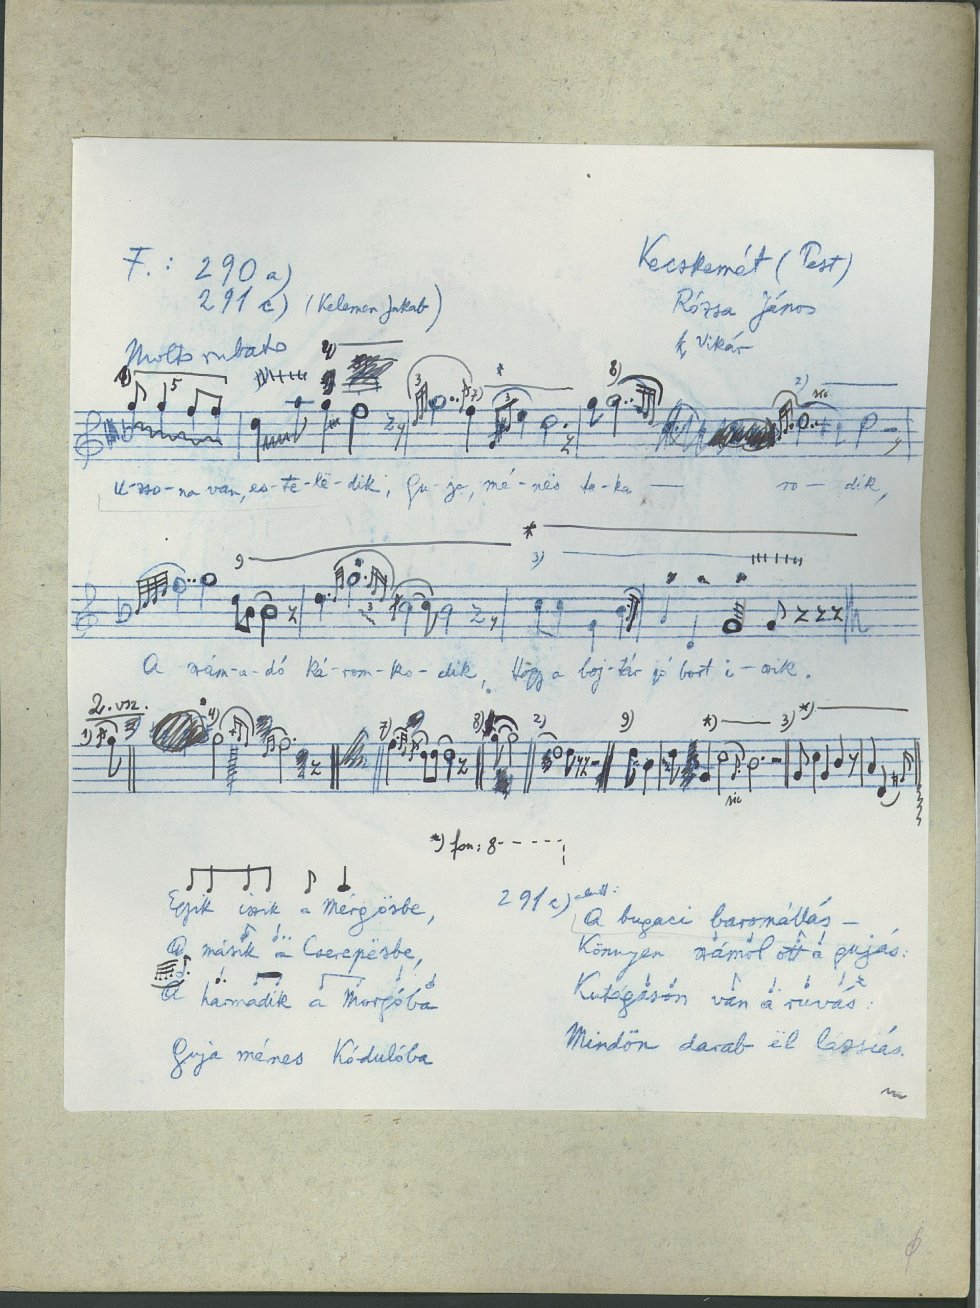 F.: 290 a)
291 c) (Kelemen Jakab)
Kecskemét (Pest)
Rózsa János
Vikár
Molto rubato
U-zso-na van, es-te-lë-dik, Gu-ja, mé-nës ta-ka — ro — dik,
A szám-a-dó ká-rom-ko-dik, Hogy a boj-tár jó bort i-szik.
2. vsz.
sic
*) fon: 8-----
Egyik iszik a Mérgösbe,
A másik a Cserepësbe,
A harmadik a Morgóba
Guja ménes Kódulóba
291 c)
A bugaci barmállás —
Könnyen számol ott a gujás:
Kutágáson van a ruvás:
Mindön darab él